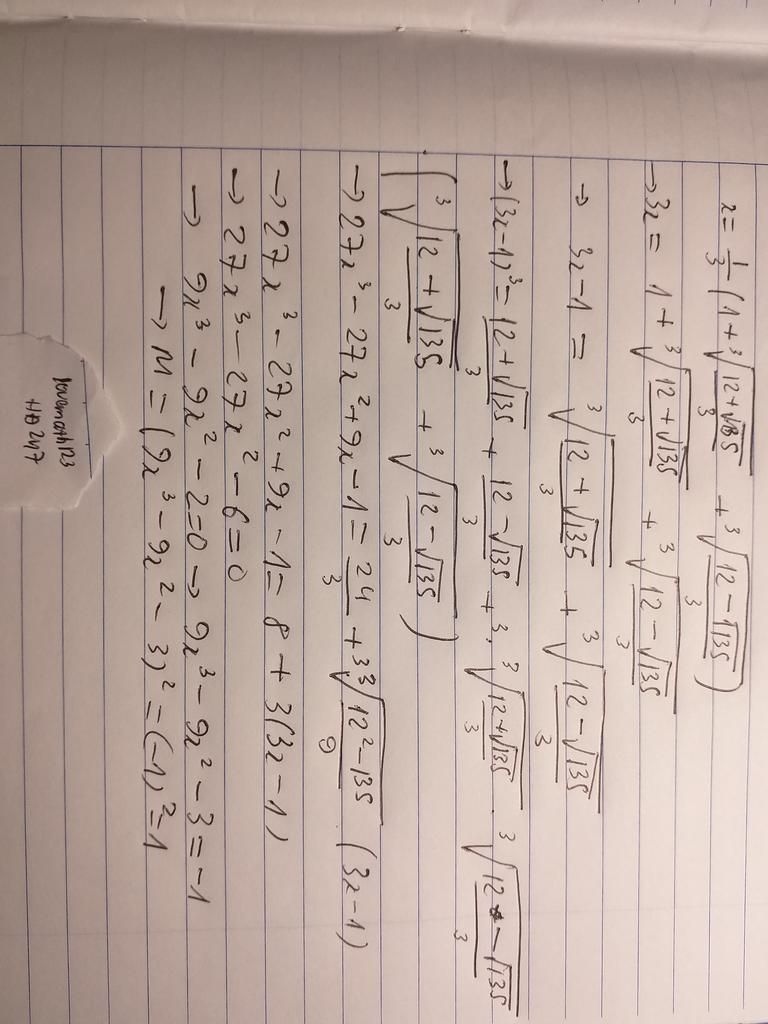 x = 1/3 (1 + ∛((12+√135)/3) + ∛((12-√135)/3))
→ 3x = 1 + ∛((12+√135)/3) + ∛((12-√135)/3)
→ 3x-1 = ∛((12+√135)/3) + ∛((12-√135)/3)
→ (3x-1)³ = (12+√135)/3 + (12-√135)/3 + 3. ∛((12+√135)/3) . ∛((12-√135)/3)
(∛((12+√135)/3) + ∛((12-√135)/3))
→ 27x³ - 27x² + 9x - 1 = 24/3 + 3∛((12²-135)/9) (3x-1)
→ 27x³ - 27x² + 9x - 1 = 8 + 3(3x-1)
→ 27x³ - 27x² - 6 = 0
→ 9x³ - 9x² - 2 = 0 → 9x³ - 9x² - 3 = -1
→ M = (9x³ - 9x² - 3)² = (-1)² = 1